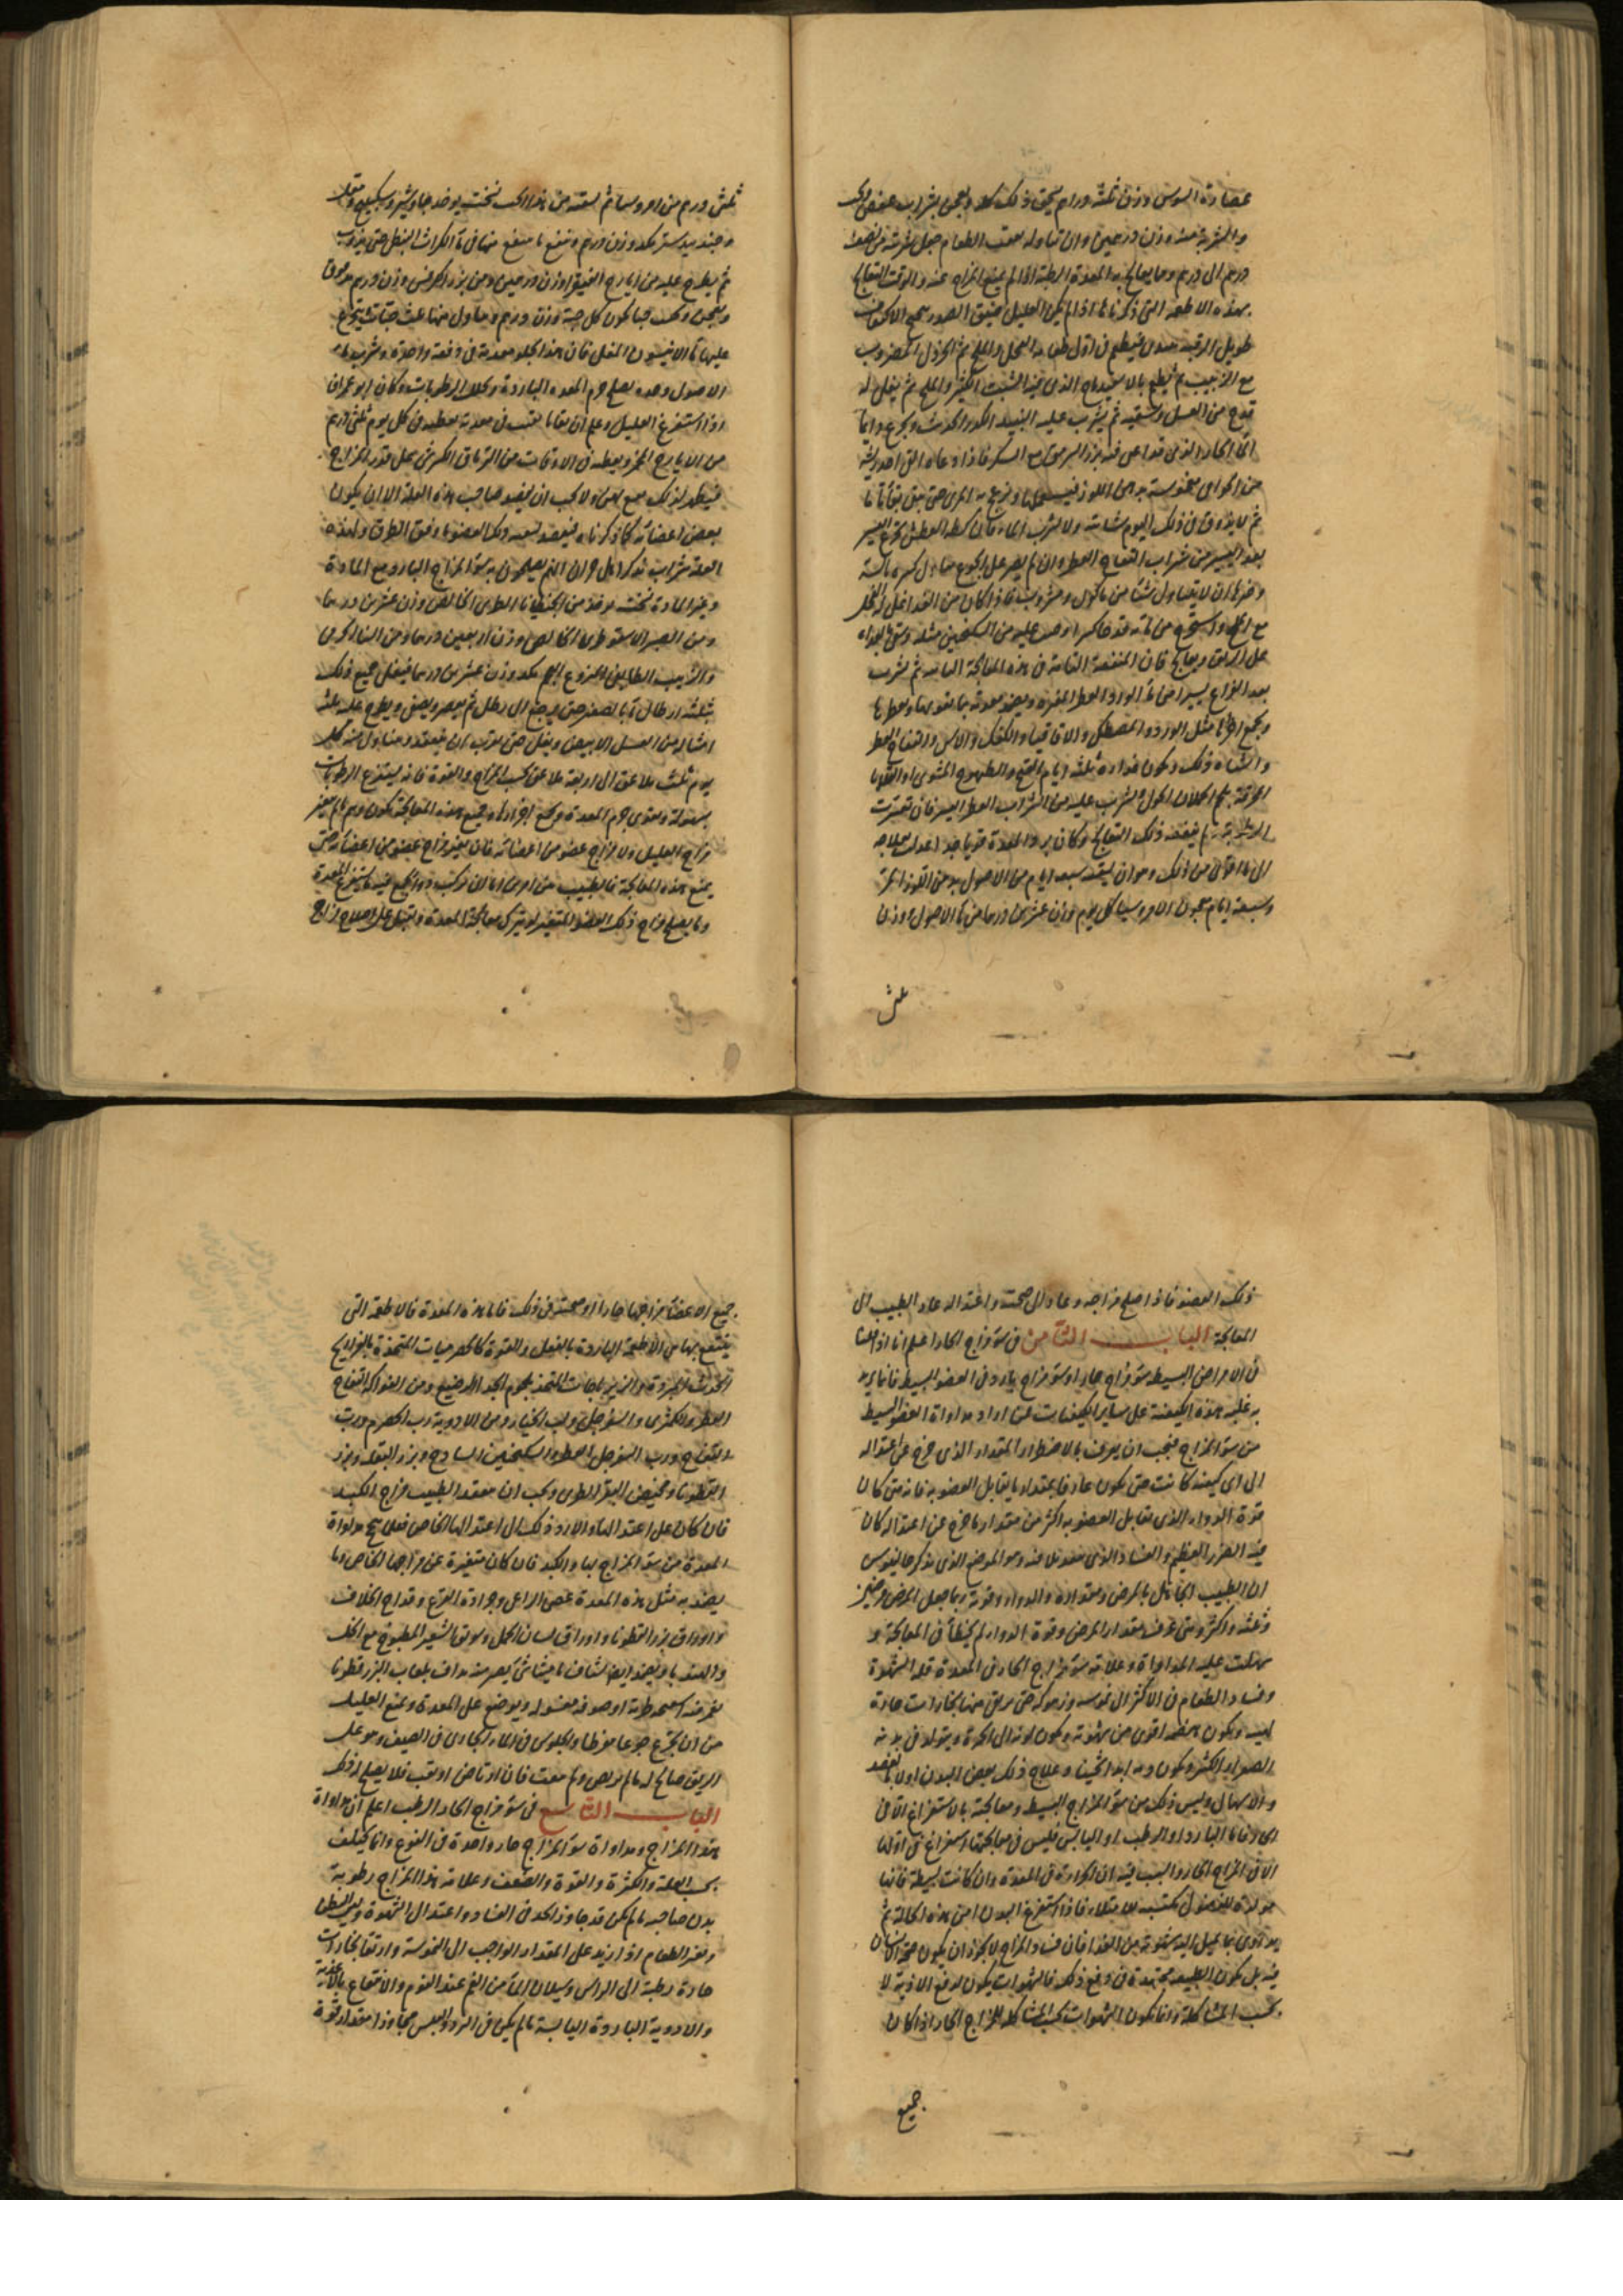 عصارة السوس وزن ثلثة دراهم يسحق ذلك كله ويعجن بشراب عفص
والشربة منه وزن درهمين وان تناوله بعقب الطعام جعل شربته من نصف
درهم الى درهم ومما يعالج به المعدة الرطبة اذا لم يمنع المزاج عنه والوقت التعالج
بهذه الاطعمة التي ذكرناها اذا لم يكن العليل ضيق الصدر
طويل الرقبة فيطعم في اول طعامه الفجل والملح ثم الخردل المضروب
مع الزبيب ثم يطعم بالاسفيدباج الذي فيه الشبت الكثير والملح ثم يغلى له
قدح من العسل ويسقيه ثم يشرب عليه النبيذ الكدر الحديث ويجرع دايما
الماء الحار الذي قد اغلي فيه بزر السرمق مع السكر فاذا دعاه القي اخذ ريشة
من الخوافي مغموسة بدهن اللوز
ثم لا يذوق في ذلك اليوم شيئا ته ولا يشرب الماء فان كظه العطش تجرع اليسير
بعد اليسير من شراب التفاح العطر وان لم يصبر على الجوع تناول كسرة يابسة
وحقه ان لا يتناول شيئا من ماكول ومشروب فاذا كان من الغد اغلى له الفجل
مع الملح
على الريق ويعالج فان المنفعة التامة في هذه المعالجة الثانية ثم يشرب
بعد الفراغ يسيرا من ماء الورد العطر المفتر ويضمد معدته بما يقويها ويعطرها
ويجمع اجزائها مثل الورد والمصطكي والاقاقيا والكعك والاس والتفاح العطر
واشباه ذلك ويكون غذاءه ثلثة ايام القبج والطيهوج المشوي او القلايا
المحرقة بلحم الحملان الحولي ويشرب عليه من الشراب العطر اليسير فان تعثرت
الرطوبة لم ينفعه ذلك التعالج وكان برد المعدة قويا جدا اعدلت بعلاجه
الى ما اقوى من ذلك وهو ان يسقيه سبعة ايام من الاصول بدهن اللوز المر
وسبعة ايام معجون الامروسيا كل يوم وزن عشرين درهما من ماء الاصول ووزن
ثلثي
ثلثي درهم من امروسيا ثم يسقيه من هذا الحب نسخته يوخذ جاوشير وسكبينج ومقل
وجندبيدستر من كل واحد وزن درهم وينقع ما ينقع منها في ماء الكراث النبطي حتى يذوب
ثم يطرح عليه من ايارج الفيقرا وزن درهمين ومن بزر الكرفس وزن درهم مدقوق
ويعجن ويحبب حبا يكون كل حبة وزن درهم ويتناول منها ثلث حبات يتجرع
عليها ماء الانيسون المغلي فان هذا يجلو معدته في دفعة واحدة وشربه ماء
الاصول وحده يصلح جرم المعدة الباردة ويحلل الرطوبات وكان ابو عمران
اذا استفرغ العليل وعلم ان بقايا بقيت في معدته يعطيه في كل يوم ثلثي درهم
من الايارج المخمر ويعطيه في الاوقات من الترياق الكبير على قدر المزاج
فيظهر لذلك نفع بين ولا يجب ان يفصد صاحب هذه العلة الا ان يكون
بعض اعضائه كما ذكرناه فيقصد لسعيه وذلك العضو ما وفق الطرق ولهذه
العلة شراب يذكر اهل حران انهم يعالجون به سوء المزاج البارد مع المادة
وغير المادة نسخته يوخذ من الجنطيانا الطري الخالص وزن عشرين درهما
ومن الصبر الاسقوطري الخالص وزن اربعين درهما ومن
والزبيب الطايفي المنزوع العجم من كل واحد وزن عشرين درهما فيغلى جميع ذلك
بثلثة ارطال ماء بالصغير حتى يرجع الى رطل ثم يعصر ويصفى ويطرح عليه ثلثة
امثاله من العسل الابيض ويغلى حتى يقرب ان ينعقد ويتناول منه كل
يوم ثلث ملاعق الى اربعة ملاعق بحسب المزاج والقوة فانه يستفرغ الرطوبات
بسهولة ويقوي جرم المعدة ويجمع اجزاءها وجميع هذه المعالجة يكون وهم ما لم يتغير
مزاج العليل ولا مزاج عضو من اعضائه فان تغير مزاج عضو من اعضائه حتى
يمنع هذه المعالجة فالطبيب بين امرين اما ان يركب دواء يجمع فيه ما يستفرغ المعدة
وما يصلح مزاج ذلك العضو المتغير او يترك معالجة المعدة ويقبل على اصلاح مزاج
ذلك العضو فاذا صلح مزاجه وعاد الى صحته واعتداله عاد الطبيب الى
المعالجة الباب الثامن في سوء مزاج الحار اعلم انا اذا قلنا
في الامراض البسيطة سوء مزاج حار او سوء مزاج بارد في العضو البسيط فانما يريد
به غلبة هذه الكيفية على ساير الكيفيات فمن اراد مداواة العضو البسيط
من سوء المزاج فيجب ان يعرف بالاضطرار المقدار الذي خرج عن اعتداله
الى اي كيفية كانت حتى يكون عارفا بمقدار ما يقابل العضو به فانه متى كان
قوة الدواء الذي يقابل العضو به اكثر من مقدار ما خرج عن اعتداله كان
فيه الضرر العظيم والفساد الذي وهو الموضع الذي يذكر جالينوس
ان الطبيب الجاهل بالمرض ومقداره والدواء وقوته ربما جعل المرض مرضين
وثلثة واكثر ومتى عرف مقدار المرض وقوة الدواء لم يخطأ في المعالجة و
سهلت عليه المداواة وعلامة سوء مزاج الحار في المعدة قلة الشهوة
وفساد الطعام في الاكثر الى غموسة وزهوكة حتى يرتقي منها بخارات حارة
لهيب ويكون هضمه اقوى من شهوته ويكون لونه الى الحمرة ويتولد في بدنه
الصفراء الكثير ويكون دمه ابدا لخينا وعلاج ذلك بعض البدن اولا بالفصد
والاسهال وليس ذلك من سوء المزاج البسيط ومعالجته بالاستفراغ الا في
الحار فاما البارد او الرطب او اليابس فليس في معالجتها استفراغ في اولها
الا في المزاج الحار والسبب فيه ان الحرارة في المعدة وان كانت بسيطة فانها
مولدة للفضول مكتسبة للامتلاء فاذا استفرغ البدن امن هذه الحالة ثم
يداوى بما يميل اليه شهوته من الغذا فان فساد المزاج لا يجوز ان يكون صحة الانسان
فيه بل يكون الطبيعة مجتهدة في دفع ذلك فالشهوات يكون لدفع الاذية لا
بحسب المشاكلة وانما تكون الشهوات بحسب المشاكلة للمزاج الحار اذا كان
جميع
جميع الاعضا مزاجها حارا او صحته في ذلك فاما هذه المعدة فالاطعمة التي
ينتفع بها من الاطعمة الباردة بالفعل والقوة كالحصرميات المتخذة بالفراريج
الحديث المبردة والزيرباجات المتخذ بلحوم الجداء الرضيع ومن الفواكه التفاح
العطر والكمثرى والسفرجل ولب الخيار ومن الادوية رب الحصرم ورب
التفاح ورب السفرجل العطر والسكنجبين الساذج وبزر البقلة وبزر
القطونا ومخيض البقر الطري ويجب ان يتفقد الطبيب مزاج الكبد
فان كان على اعتدالها والا رد ذلك الى اعتدالها الخاص فعلى صحة مداواة
المعدة من سوء المزاج بها والكبد فان كان متغيرة عن مزاجها الخاص وما
يضمد به مثل هذه المعدة عصى الراعي وجرادة القرع وقداح الخلاف
واوراق بزر القطونا واوراق لسان الحمل وسويق الشعير المطبوخ مع الخل
والهندباء ويضمد ايضا بشياف ماميثا في بصر منه يداف بلعاب البزر قطونا
يغمر فيه اسفنجة طرية او صوفة مغسولة ويوضع على المعدة ويمنع العليل
من ان يتجرع جوعا مفرطا والجلوس في الماء الجاري في الصيف وهو على
الريق صالح له ما لم ينحل فان ارتاض او تعب فلا يصلح له ذلك
الباب التاسع في سوء مزاج الحار الرطب اعلم ان مداواة
هذا المزاج ومداواة سوء المزاج حار واحدة في النوع وانما يختلف
بحسب العلة والكثرة والقوة والضعف وعلامة هذا المزاج رطوبة
بدن صاحبه ما لم يكن قد جاوز الحد في الفساد واعتدال الشهوة ولين البطن
وتغير الطعام اذا زيد على المقدار الواجب الى الغموسة وارتقا بخارات
حارة رطبة الى الراس وسيلان الماء من الفم عند النوم والانتفاع بالاغذية
والادوية الباردة اليابسة ما لم يكن في البرد واليبس مجاوزا مقدار قوة